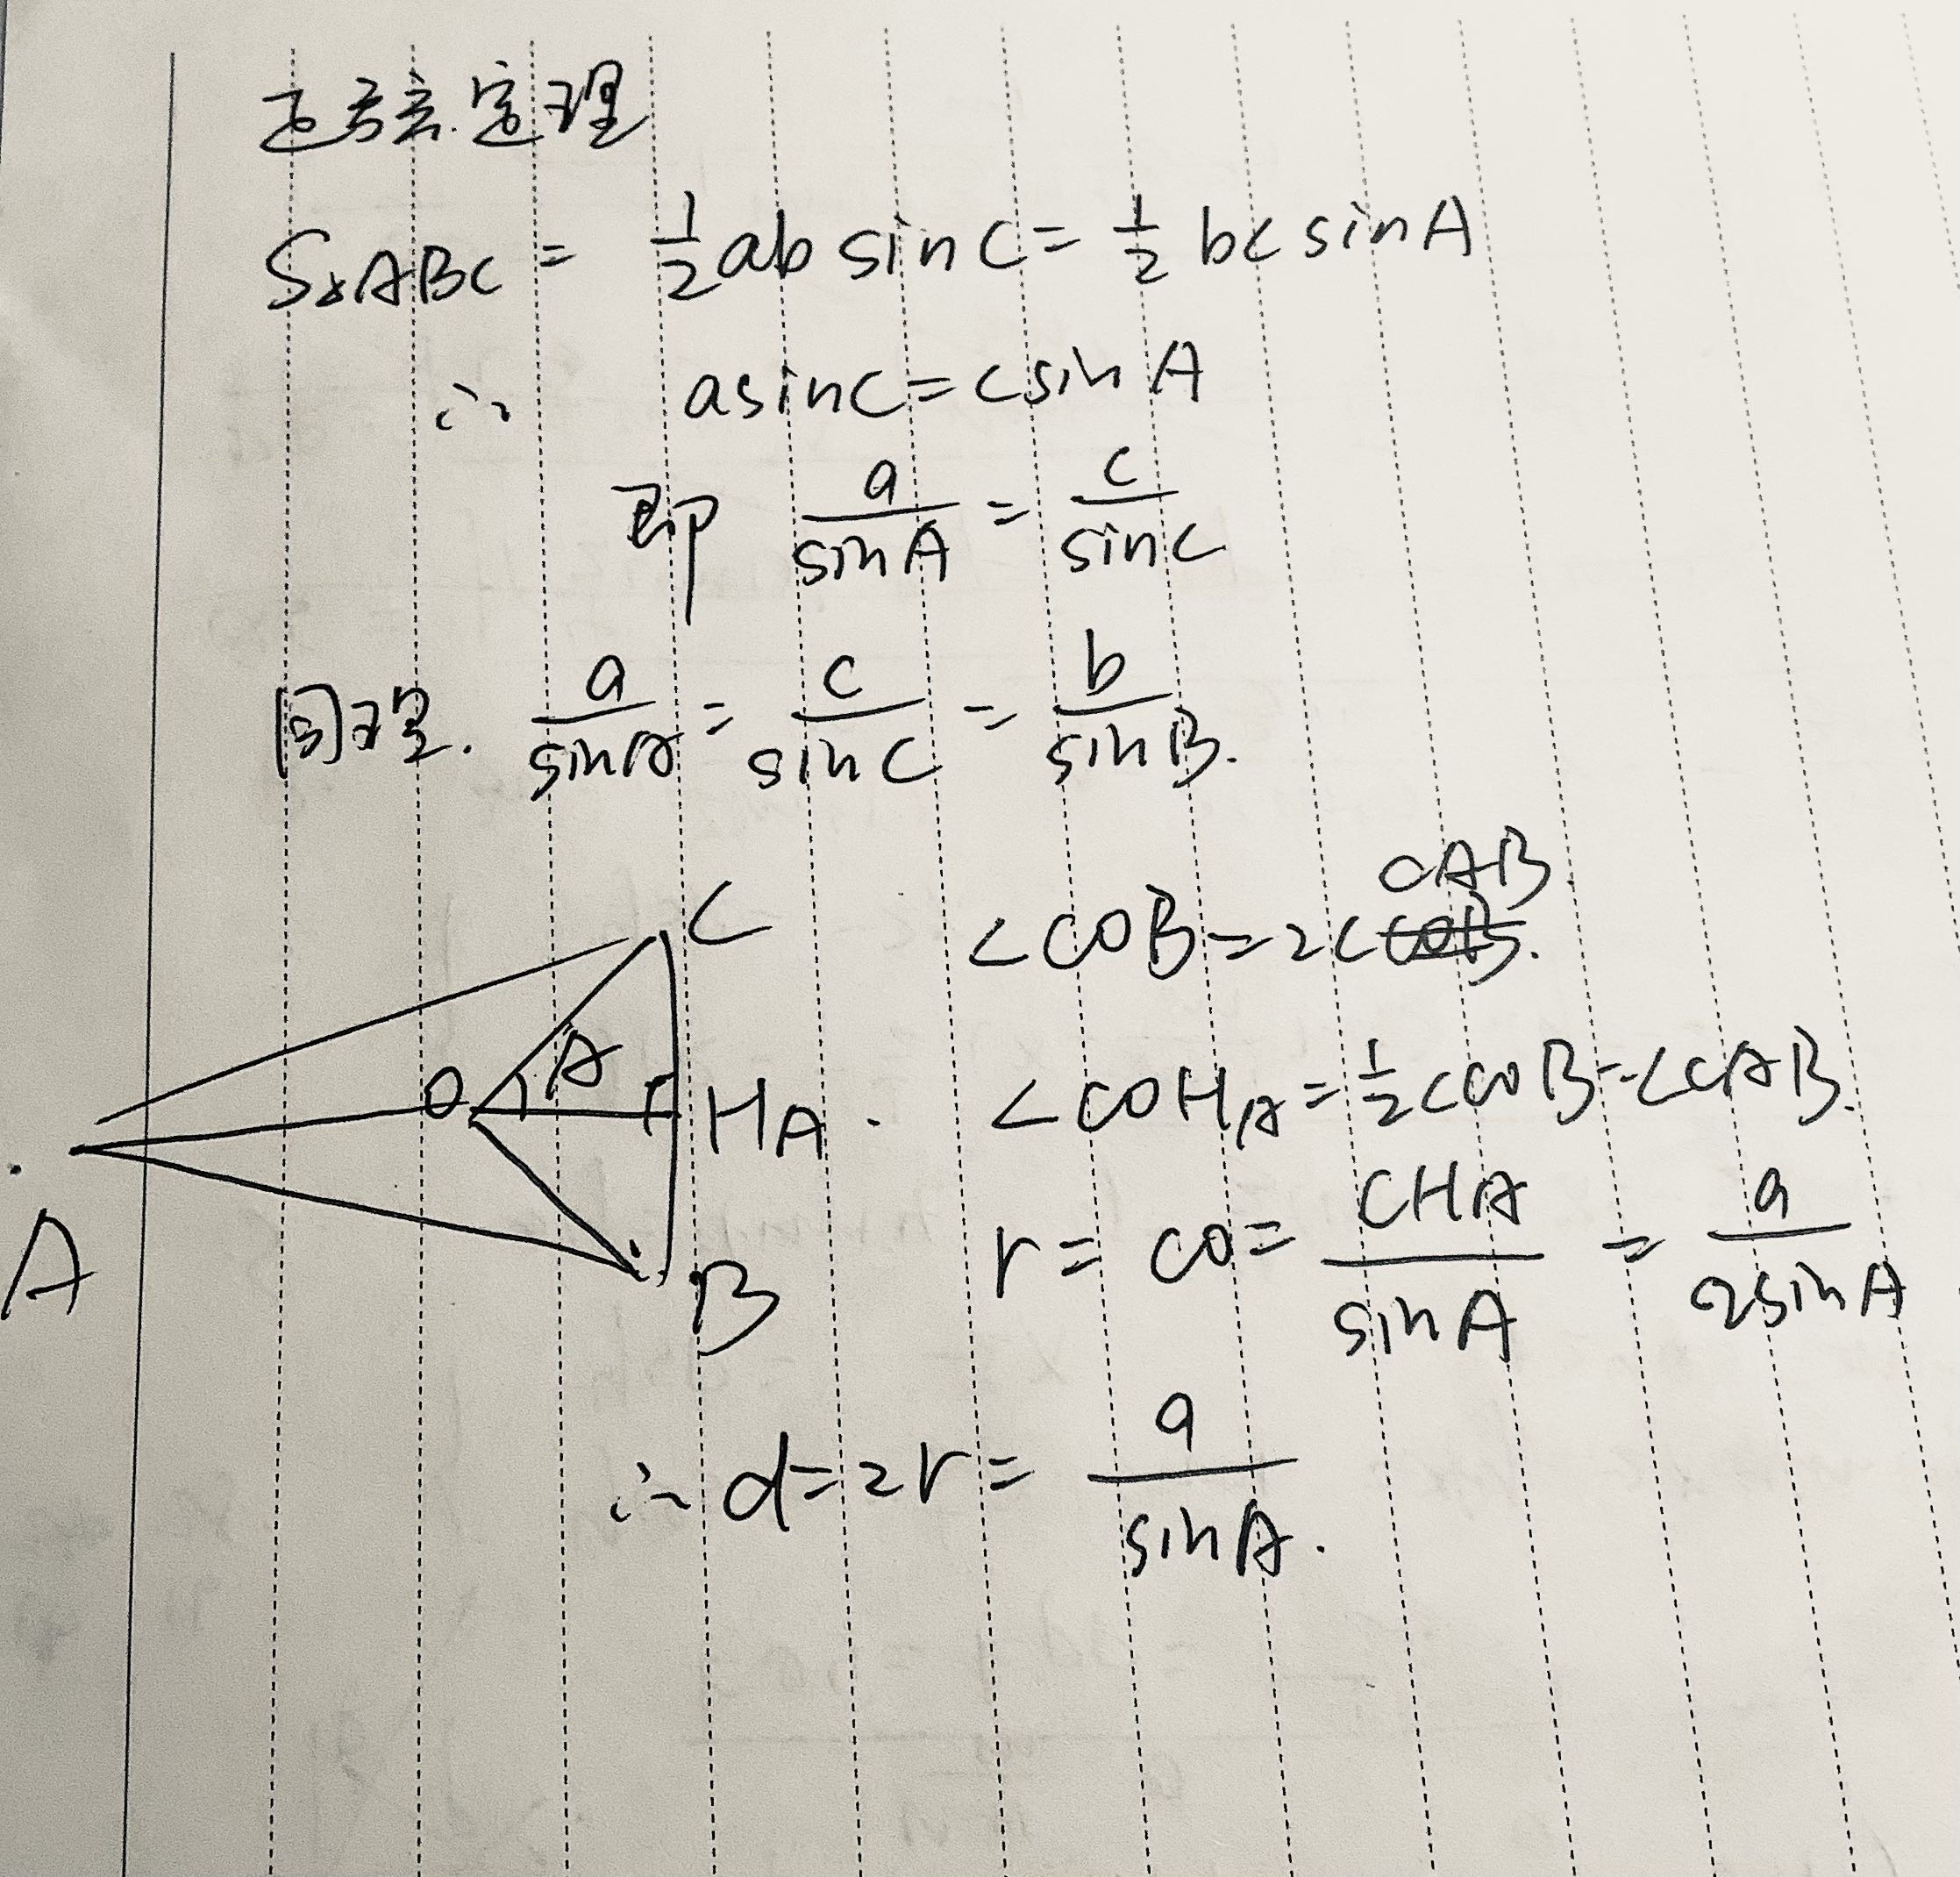 正弦定理
S△ABC = 1/2 ab sinC = 1/2 bc sinA
∴ asinC = csinA
即 a/sinA = c/sinC
同理. a/sinA = c/sinC = b/sinB.
C
O
A
H_A
A
B
CAB.
∠COB = 2∠COB.
∠COH_A = 1/2 ∠COB = ∠CAB.
r = CO = CH_A/sinA = a/2sinA
∴ d = 2r = a/sinA.